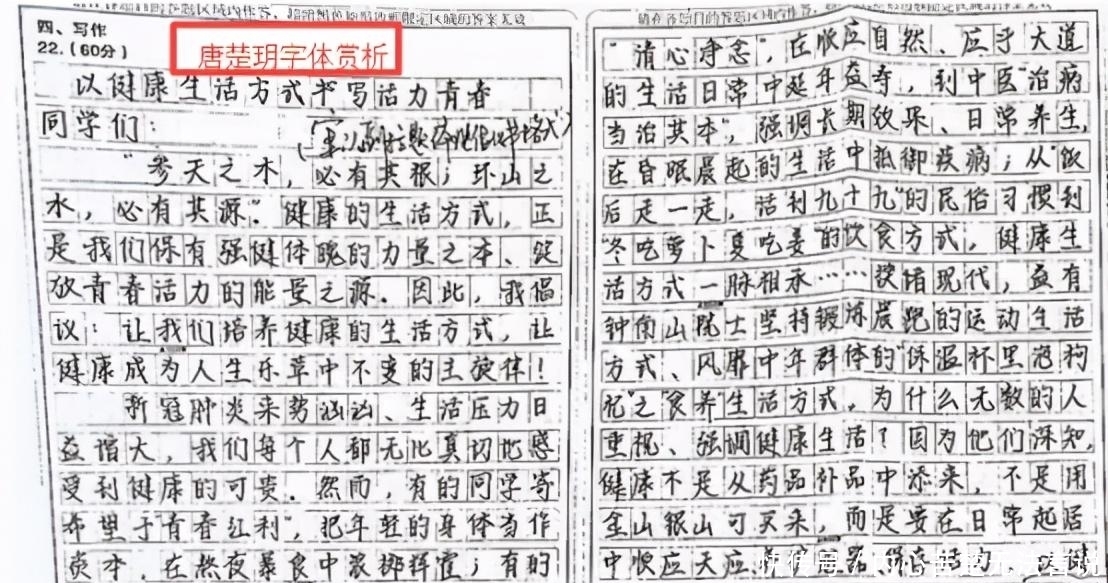 四、写作
22.(60分)
唐楚玥字体赏析
以健康生活方式书写活力青春
同学们:
“参天之木,必有其根;环山之
水,必有其源”。健康的生活方式,正
是我们保有强健体魄的力量之本、绽
放青春活力的能量之源。因此,我倡
议:让我们培养健康的生活方式,让
健康成为人生乐章中不变的主旋律!
新冠肺炎来势汹汹、生活压力日
益增大,我们每个人都无比真切地感
受到健康的可贵。然而,有的同学寄
希望于“青春红利”,把年轻的身体当作
资本,在熬夜暴食中浪掷挥霍;有的
“清心净念”,在顺应自然、应乎大道
的生活日常中延年益寿,到中医“治病
当治其本”,强调长期效果、日常养生,
在昏眠晨起的生活中抵御疾病;从“饭
后走一走,活到九十九”的民俗习惯到
“冬吃萝卜夏吃姜”的饮食方式,健康生
活方式一脉相承……读诸现代,益有
钟南山院士坚持锻炼晨跑的运动生活
方式、风靡中年群体的“保温杯里泡枸
杞”之“食养”生活方式,为什么无数的人
重视、强调健康生活?因为他们深知,
健康不是从药品补品中添来,不是用
金山银山可买来,而是要在日常起居
中顺应天应
快传号